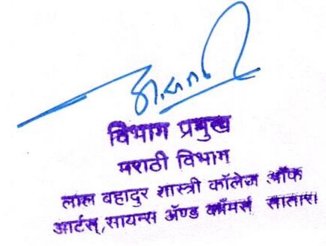 विभाग प्रमुख
मराठी विभाग
लाल बहादुर शास्त्री कॉलेज ऑफ
आर्टस्,सायन्स ॲण्ड कॉमर्स सातारा